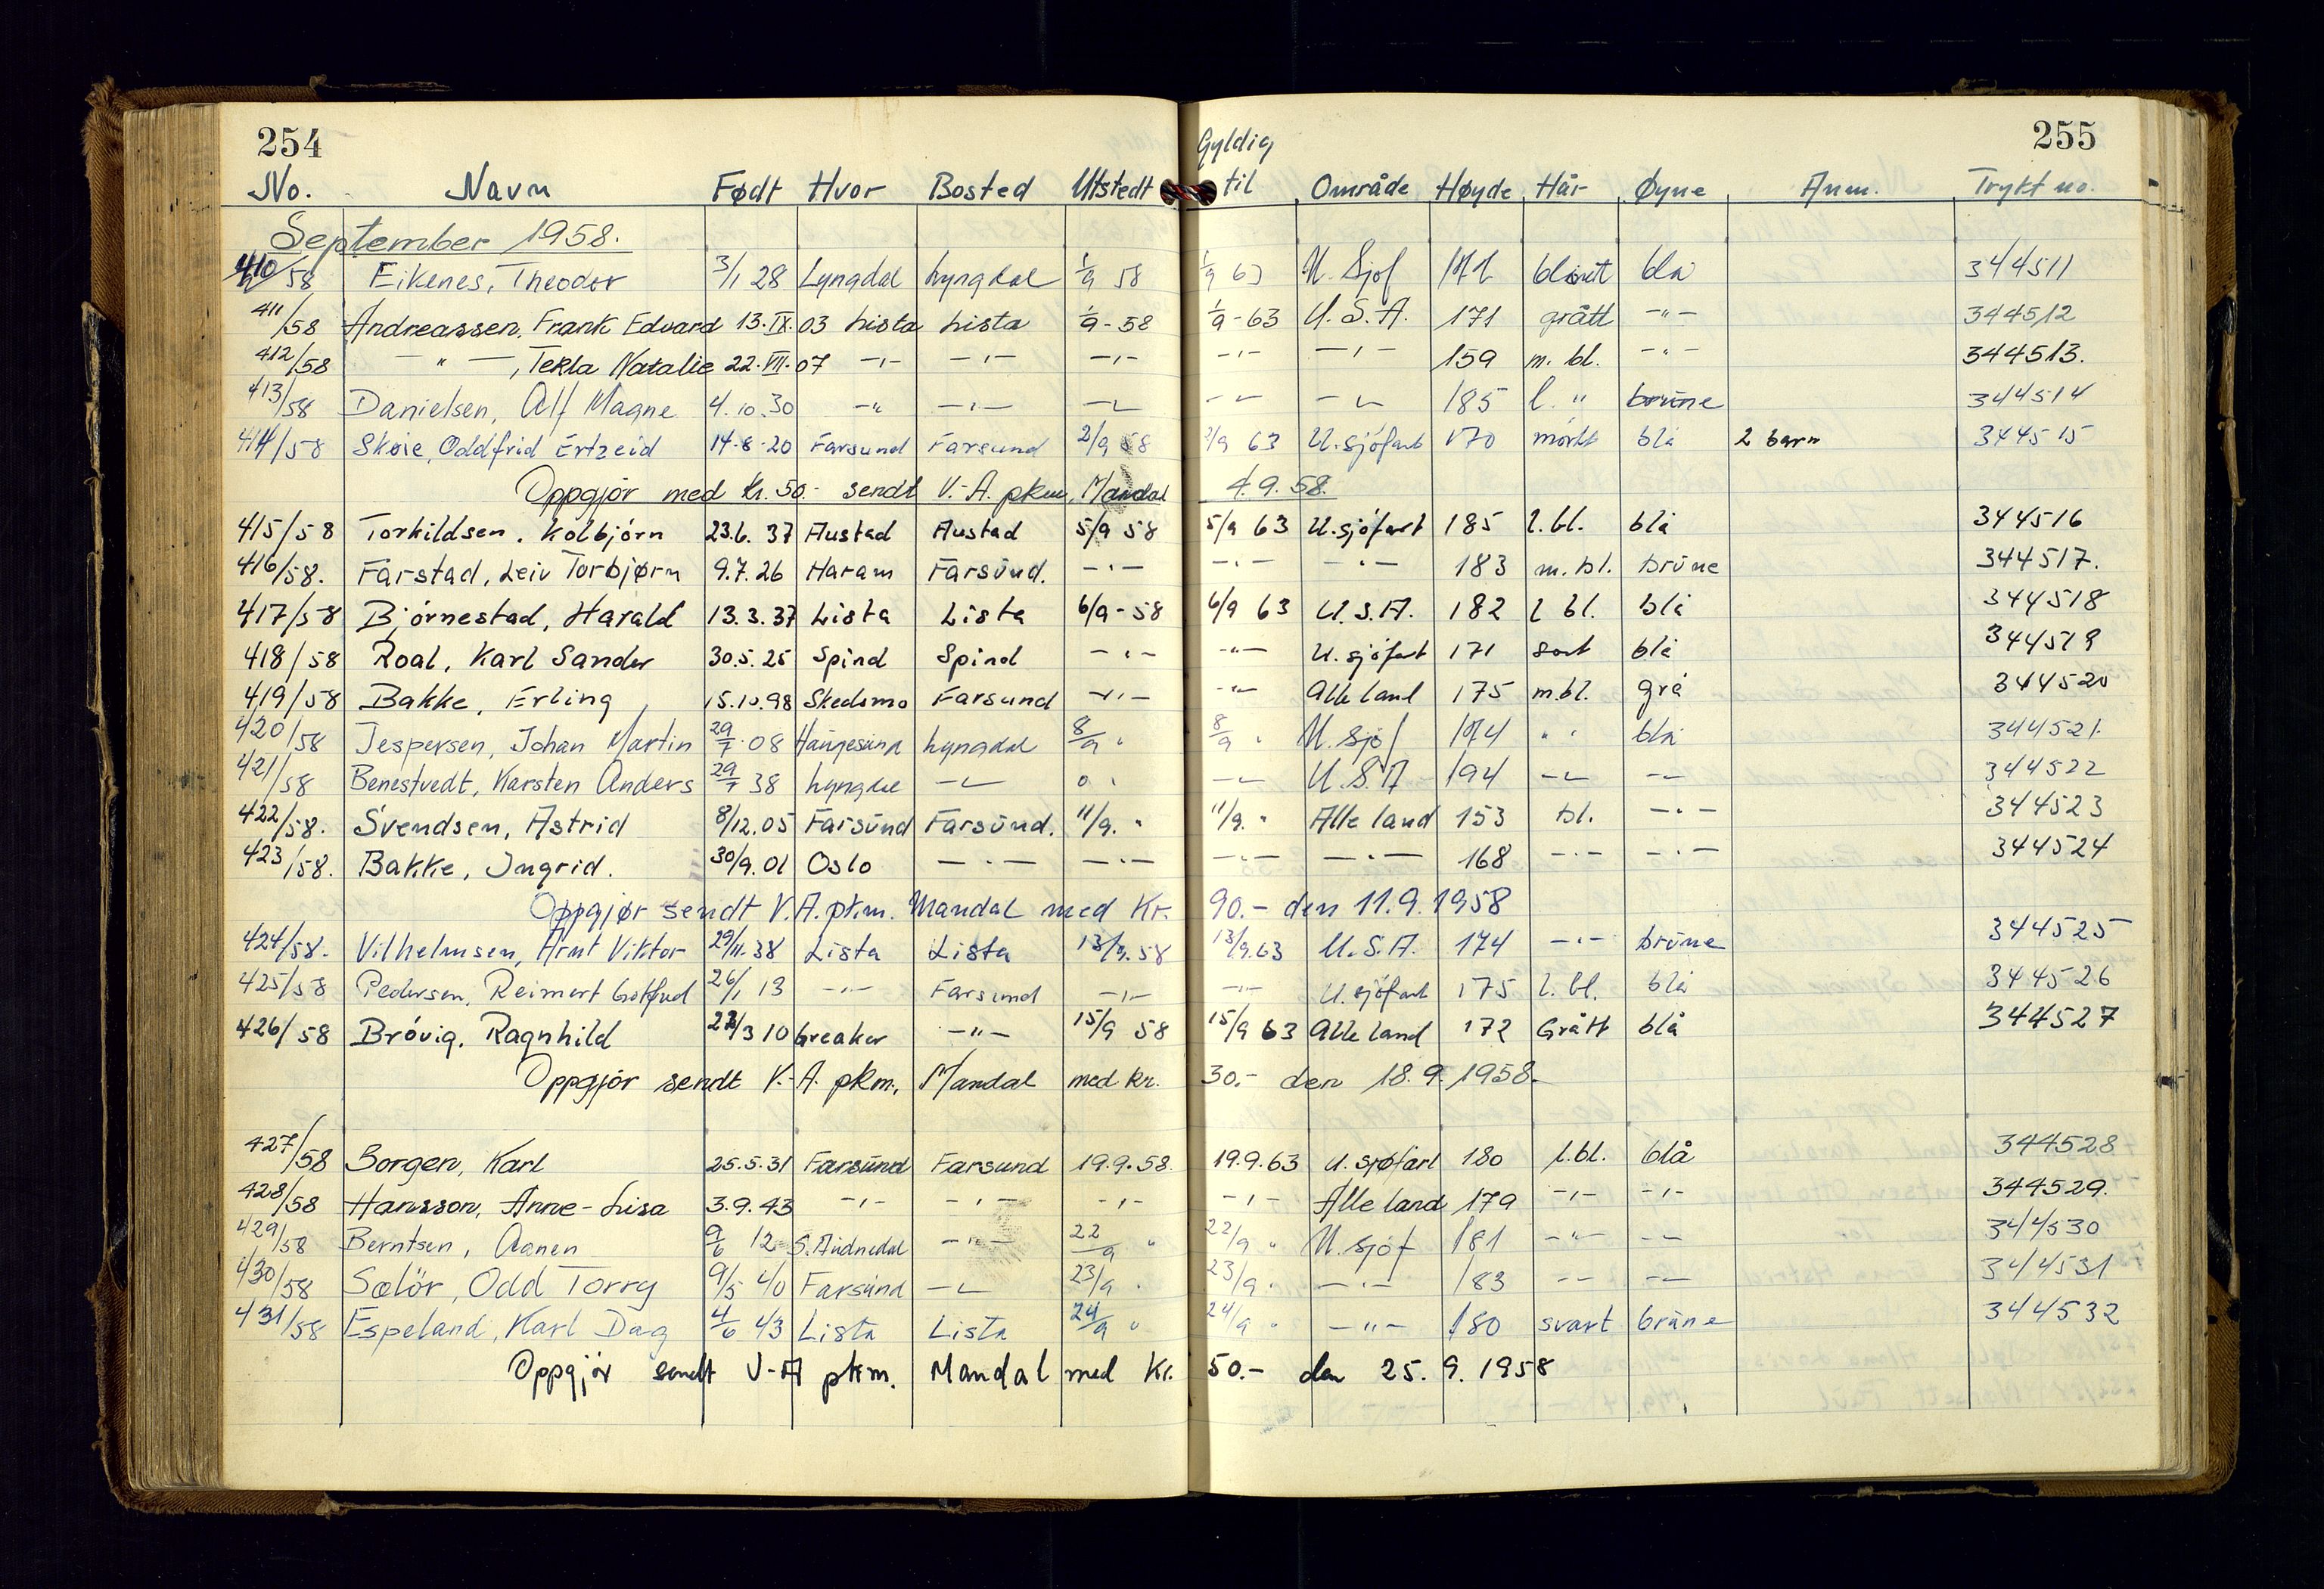 254
255
No. Navn Født Hvor Bosted Utstedt Gyldig til Område Høyde Hår Øyne Anm. Trykt no.
September 1958.
410/58 Eikenes, Theodor 3/1 28 Lyngdal Lyngdal 1/9 58 1/9 63 U. Sjøf 171 blont blå 344511
411/58 Andreassen, Frank Edvard 13.IX.03 Lista Lista 1/9-58 1/9-63 U.S.A. 171 grått -"- 344512
412/58 -"-, Tekla Natalie 22.VII.07 -"- -"- -"- -"- -"- 159 m. bl. -"- 344513.
413/58 Danielsen, Alf Magne 4.10.30 -"- -"- -"- -"- -"- 185 l. " brune 344514
414/58 Skeie, Oddfrid Ertzeid 14-8-20 Farsund Farsund 2/9 58 2/9 63 U.sjöfart 170 mörkt blå 2 barn 344515
Oppgjör med kr. 50.- sendt V.-A. pkm, Mandal 4.9.58.
415/58 Torkildsen, Kolbjörn 23.6.37 Austad Austad 5/9 58 5/9 63 U.sjöfart 185 l.bl. blå 344516
416/58. Farstad, Leiv Torbjørn 9.7.26 Haram Farsund. -"- -"- -"- 183 m.bl. brune 344517.
417/58 Björnestad, Harald 13.3.37 Lista Lista 6/9-58 6/9 63 U.S.A. 182 l bl. blå 344518
418/58 Roal, Karl Sander 30.5.25 Spind Spind -"- -"- U.sjöfart 171 sort blå 344519
419/58 Bakke, Erling 15.10.98 Skedsmo Farsund -"- -"- Alle land 175 m.bl. grå 344520
420/58 Jespersen, Johan Martin 29/7.08 Haugesund Lyngdal 8/9 " 8/9 " U. Sjöf 174 " " blå 344521.
421/58 Benestvedt, Karsten Anders 29/7 38 Lyngdal -"- " " -"- U.S.A 194 -"- -"- 344522
422/58. Svendsen, Astrid 8/12.05 Farsund Farsund. 11/9. " 11/9. " Alle land 153 bl. -"- 344523
423/58. Bakke, Ingrid. 30/9.01 Oslo -"- -"- -"- -"- 168 -"- -"- 344524
Oppgjør sendt V.A. pkm. Mandal med Kr. 90.- den 11.9.1958
424/58. Vilhelmsen, Arnt Viktor 29/11.38 Lista Lista 13/9.58 13/9.63 U.S.A. 174 -"- brune 344525
425/58 Pedersen, Reimert 26/1 13 -"- Farsund -"- -"- U.sjöfart 175 l.bl. blå 344526
426/58 Brövig, Ragnhild /3 10 Greaker -"- 15/9 58 15/9 63 Alle land 172 Grått blå 344527
Oppgjör sendt V.-A. pkm., Mandal med kr. 30.- den 18.9.1958.
427/58 Borgen, Karl 25.5.31 Farsund Farsund 19.9.58. 19.9.63 U.sjøfart 180 l.bl. blå 344528
428/58 Hansson, Anne-Lisa 3.9.43 -"- -"- -"- -"- Alle land 179 -"- -"- 344529.
429/58 Berntsen, Aanen 9/6 12 S.Audnedal -"- 22/9 " 22/9 " U. sjöf 181 -"- -"- 344530
430/58 Sælör, Odd Torry 9/5 40 Farsund -"- 23/9 " 23/9 " -"- 183 -"- -"- 344531
431/58 Espeland, Karl Dag 4/6 43 Lista Lista 24/9 " 24/9 " -"- 180 svart brune 344532
Oppgjör sendt V-A pkm. Mandal med Kr. 50.- den 25.9.1958